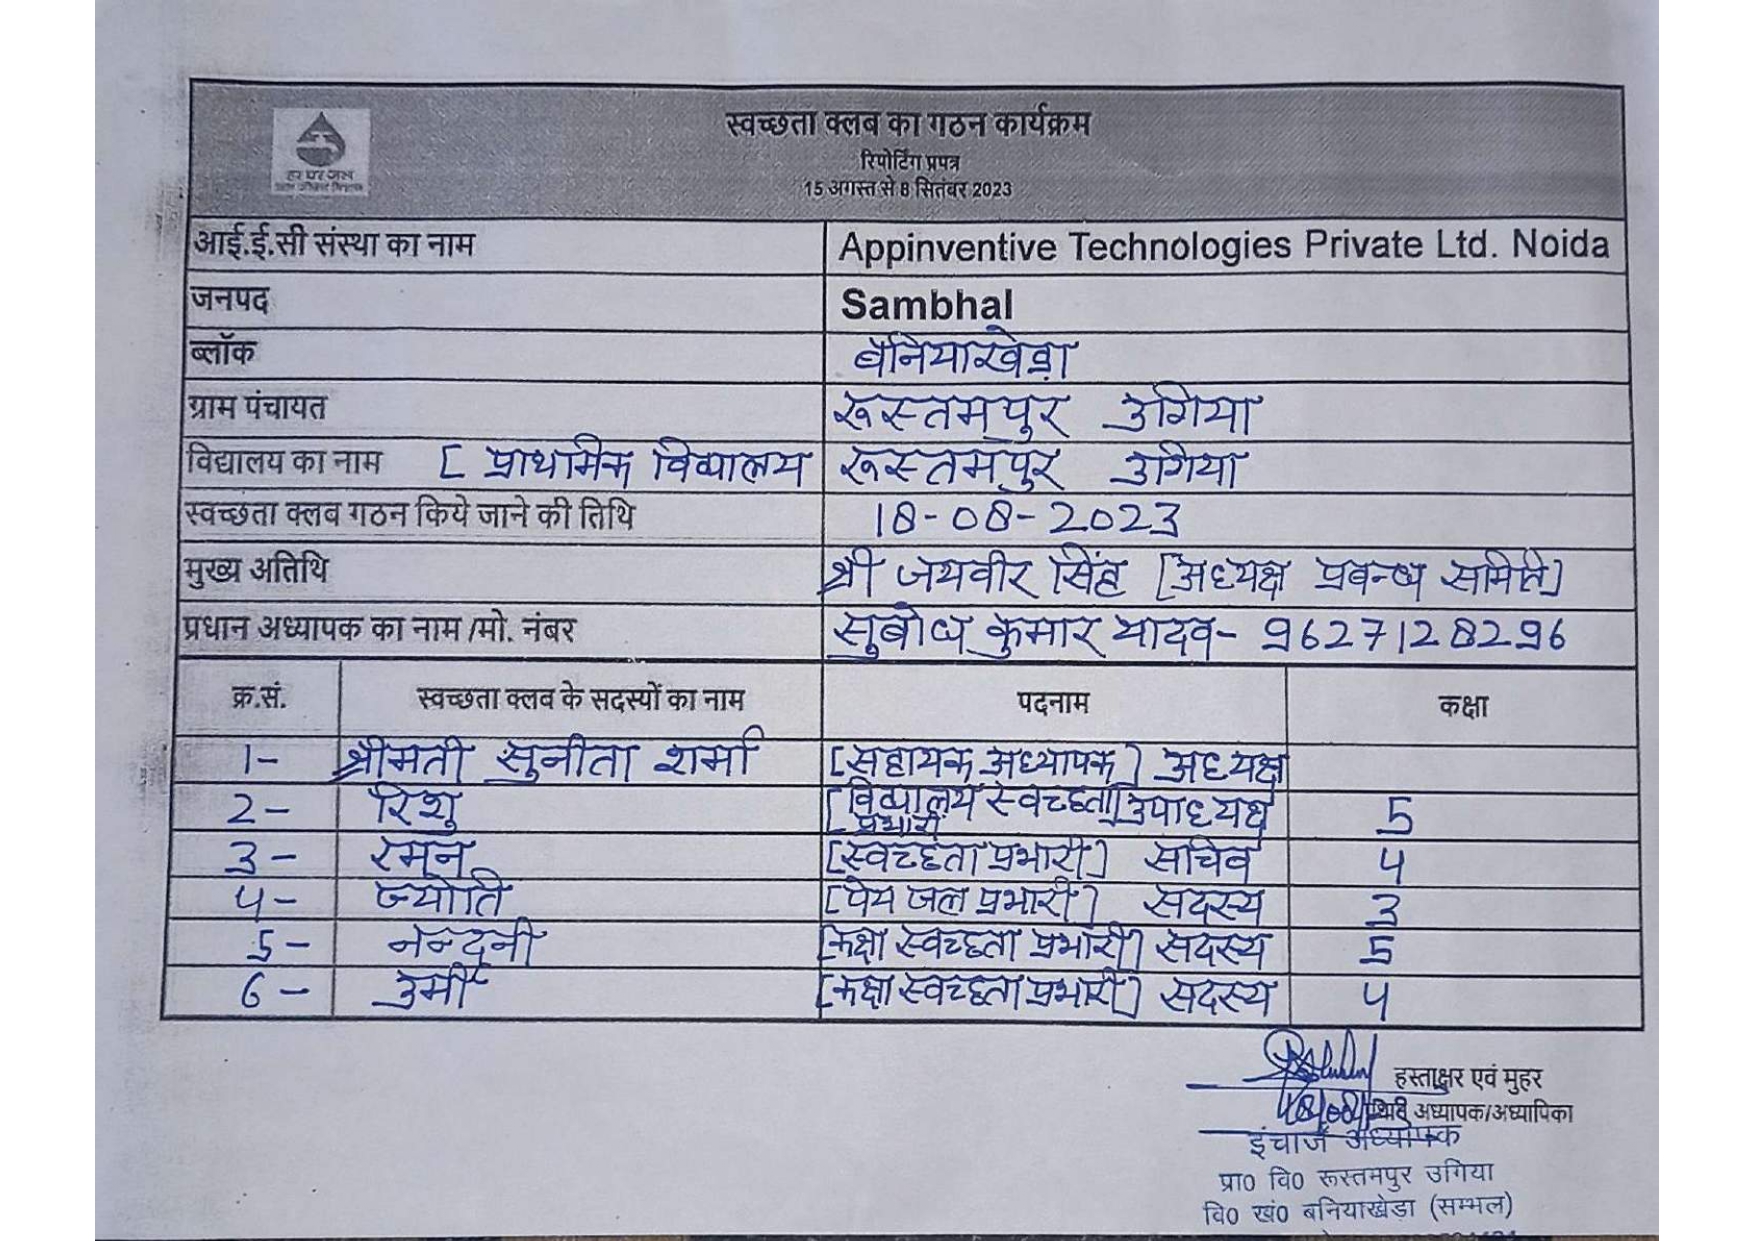 हर घर जल
स्वच्छता क्लब का गठन कार्यक्रम
रिपोर्टिंग प्रपत्र
15 अगस्त से 8 सितंबर 2023
आई.ई.सी संस्था का नाम Appinventive Technologies Private Ltd. Noida
जनपद Sambhal
ब्लॉक बनियाखेड़ा
ग्राम पंचायत रूस्तमपुर उगिया
विद्यालय का नाम [ प्राथमिक विद्यालय रूस्तमपुर उगिया
स्वच्छता क्लब गठन किये जाने की तिथि 18-08-2023
मुख्य अतिथि श्री जयवीर सिंह [अध्यक्ष प्रबन्ध समिति]
प्रधान अध्यापक का नाम /मो. नंबर सुबोध कुमार यादव- 9627128296
क्र.सं. स्वच्छता क्लव के सदस्यों का नाम पदनाम कक्षा
1- श्रीमती सुनीता शर्मा [सहायक अध्यापक] अध्यक्ष
2- रिशु [विद्यालय स्वच्छता प्रभारी] उपाध्यक्ष 5
3- रमन [स्वच्छता प्रभारी] सचिव 4
4- ज्योति [पेय जल प्रभारी] सदस्य 3
5- नन्दनी [कक्षा स्वच्छता प्रभारी] सदस्य 5
6- उर्मी [कक्षा स्वच्छता प्रभारी] सदस्य 4
हस्ताक्षर एवं मुहर
अध्यापक/अध्यापिका
इंचार्ज अध्यापक
प्रा0 वि0 रूस्तमपुर उगिया
वि0 खं0 बनियाखेडा (सम्भल)